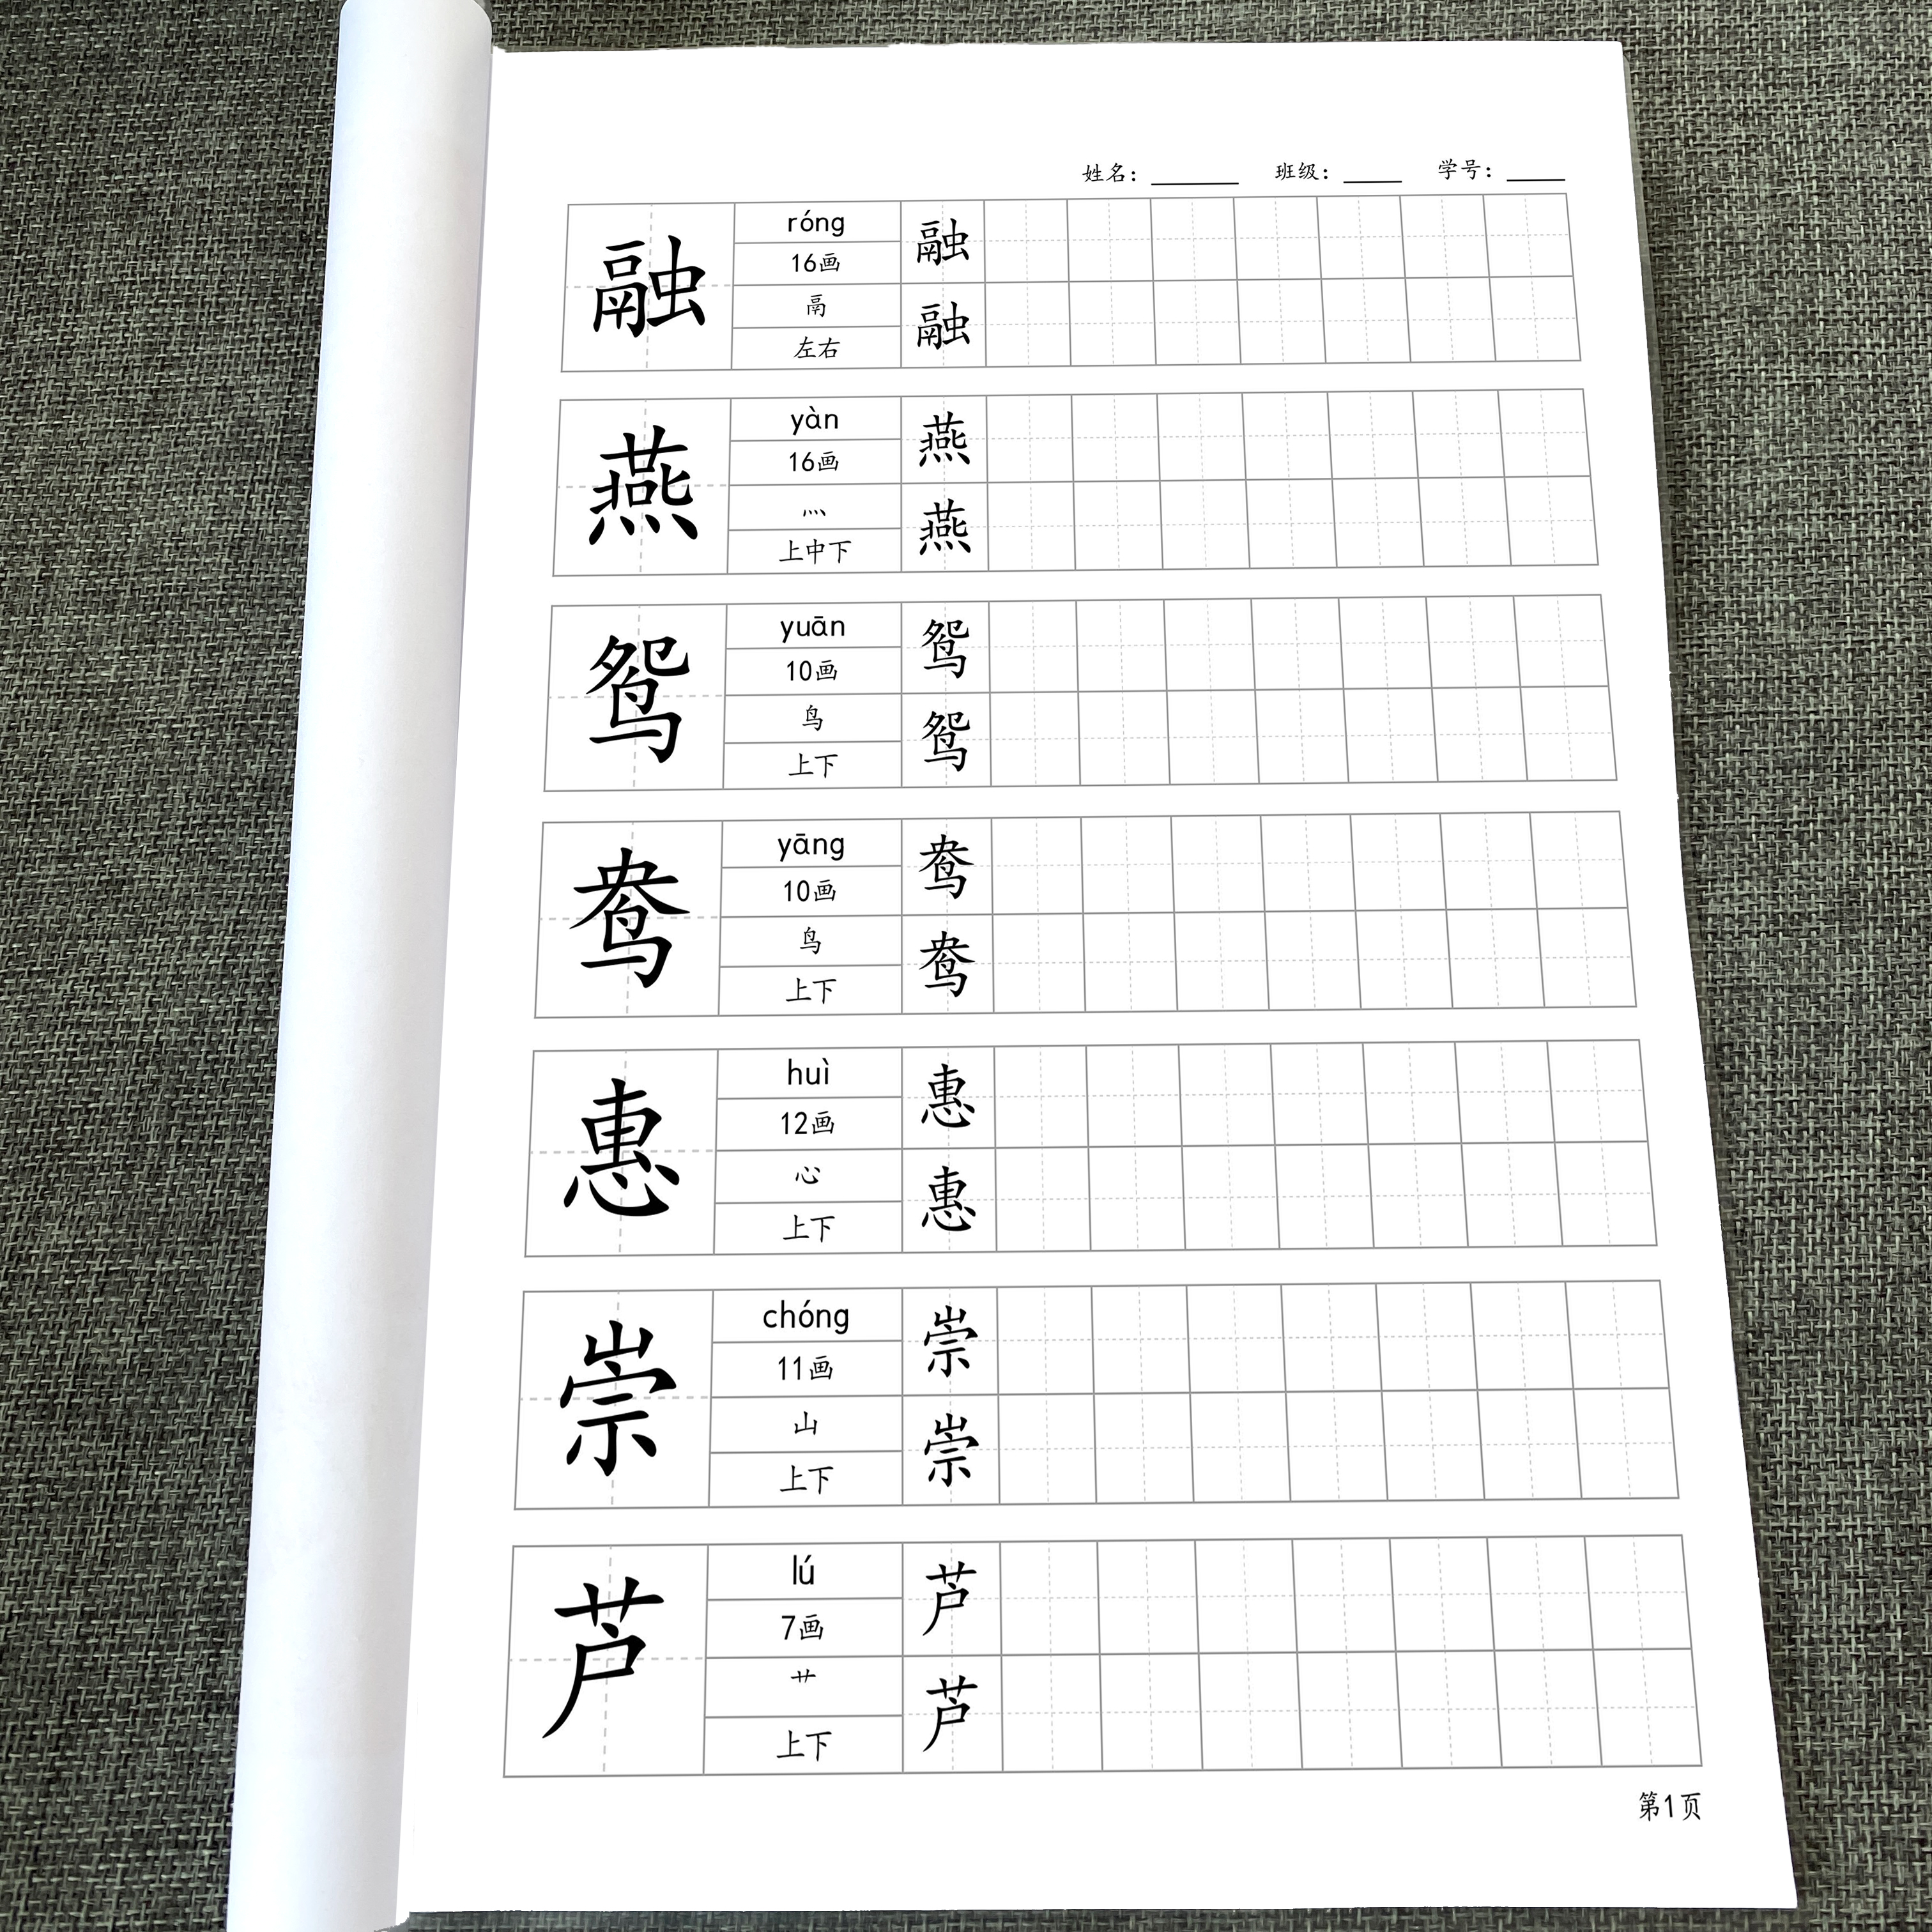 姓名：______ 班级：____ 学号：____
融 róng 融
16画
鬲 融
左右
燕 yàn 燕
16画
灬 燕
上中下
鸳 yuān 鸳
10画
鸟 鸳
上下
鸯 yāng 鸯
10画
鸟 鸯
上下
惠 huì 惠
12画
心 惠
上下
崇 chóng 崇
11画
山 崇
上下
芦 lú 芦
7画
艹 芦
上下
第1页